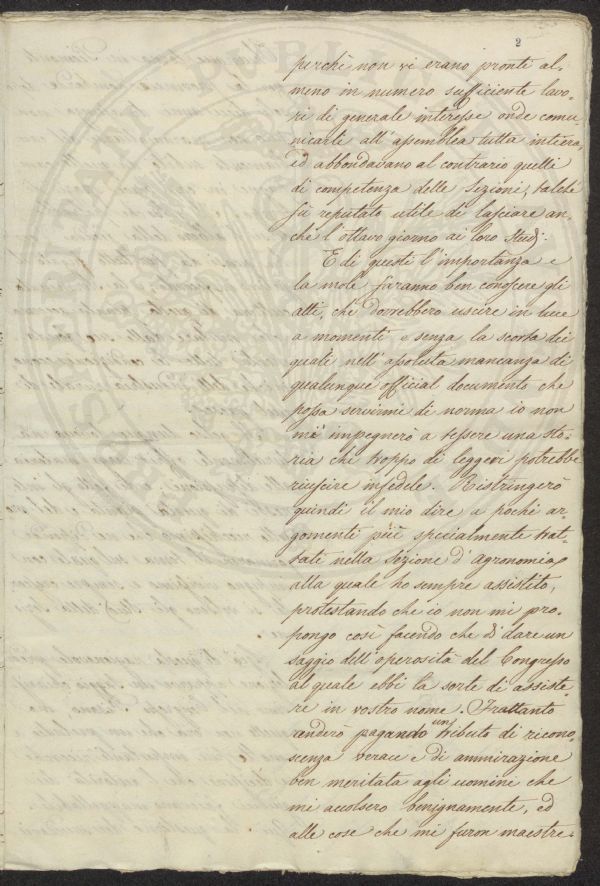 2
perchè non vi erano pronti al-
meno in numero sufficiente lavo-
ri di generale interesse onde comu-
nicarli all'assemblea tutta intiera,
ed abbondavano al contrario quelli
di competenza delle Sezioni; talchè
fù reputato utile di lasciare an-
che l'ottavo giorno ai loro studj.
E di questi l'importanza e
la mole faranno ben conoscere gli
atti, che dovrebbero uscire in luce
a momenti, e senza la scorta dei
quali nell'assoluta mancanza di
qualunque official documento che
possa servirmi di norma io non
mi impegnerò a tessere una sto-
ria che troppo di leggeri potrebbe
riuscire infedele. Ristringerò
quindi il mio dire a pochi ar-
gomenti più specialmente trat-
tati nella Sezione d'Agronomia,
alla quale ho sempre assistito,
protestando che io non mi pro-
pongo così facendo che di dare un
saggio dell'operosità del Congresso
al quale ebbi la sorte di assiste-
re in vostro nome. Frattanto
anderò pagando un tributo di ricono-
scenza verace e di ammirazione
ben meritata agli uomini che
mi accolsero benignamente, ed
alle cose che mi furon maestre.